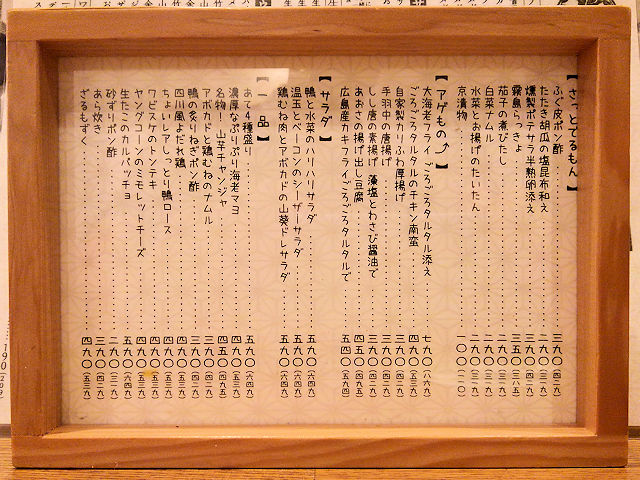 【さっとでるもん】
ふぐ皮ポン酢…三九〇(四二九)
たたき胡瓜の塩昆布和え…二九〇(三一九)
燻製ポテサラ半熟卵添え…三九〇(四二九)
霧島らっきょ…三五〇(三八五)
茄子の煮びたし…二九〇(三一九)
白菜ナムル…二九〇(三一九)
水菜とお揚げのたいたん…二九〇(三一九)
京漬物…一〇〇(一一〇)
【アゲもの⤴】
大海老フライ ごろごろタルタル添え…七九〇(八六九)
ごろごろタルタルのチキン南蛮…四九〇(五三九)
自家製カリふわ厚揚げ…三九〇(四二九)
手羽中の唐揚げ…三九〇(四二九)
しし唐の素揚げ 藻塩とわさび醤油で…三九〇(四二九)
あおさの揚げ出し豆腐…四五〇(四九五)
広島産カキフライごろごろタルタルで…五四〇(五九四)
【サラダ】
鴨と水菜のハリハリサラダ…五九〇(六四九)
温玉とベーコンのシーザーサラダ…五九〇(六四九)
鶏むね肉とアボカドの山葵ドレサラダ…五九〇(六四九)
【一品】
あて4種盛り…五九〇(六四九)
濃厚なぷりぷり海老マヨ…四九〇(五三九)
名物!山芋チャンジャ…四五〇(四九五)
アボカドと鶏むねのナムル…三九〇(四二九)
鴨の炙りねぎポン酢…三九〇(四二九)
四川風よだれ鶏…四九〇(五三九)
ちょいレアしっとり鴨ロース…四九〇(五三九)
ワビスケのトンテキ…四九〇(五三九)
ヤングコーンのミモレットチーズ…四九〇(五三九)
生たこのカルパッチョ…五九〇(六四九)
砂ずりポン酢…二九〇(三一九)
あら炊き…三九〇(四二九)
ざるもずく…四九〇(五三九)
190